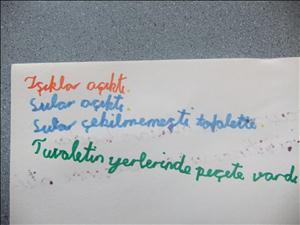 Işıklar açıktı.
Sular açıktı.
Sular çekilmemişti tofalette.
Tuvaletin yerlerinde peçete vardı